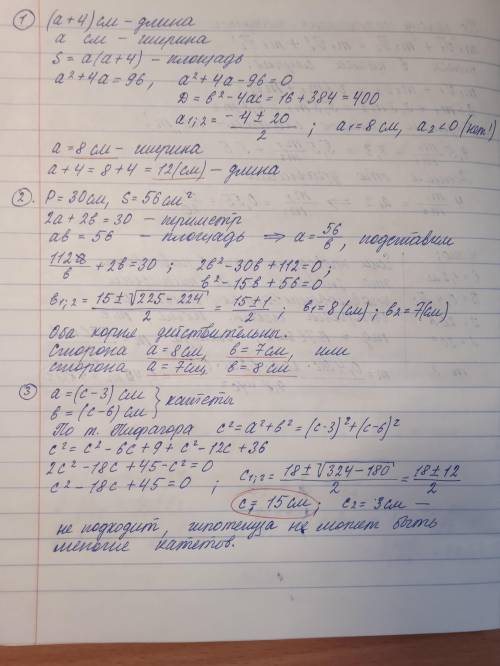 ① (а+4) см - длина
а см - ширина
S = а(а+4) - площадь
а²+4а=96, а²+4а-96=0
D = в²-4ас = 16+384=400
а1;2 = (-4±20)/2 ; а1=8см, а2<0 (нет!)
а=8см - ширина
а+4=8+4=12(см) - длина
②. Р=30см, S=56см²
2а+2в=30 - периметр
ав=56 - площадь ⇒ а=56/в, подставим
112/в+2в=30 ; 2в²-30в+112=0;
в²-15в+56=0
в1;2=(15±√225-224)/2=(15±1)/2; в1=8(см); в2=7(см)
Оба корня действительны.
Сторона а=8см, в=7см, или
сторона а=7см, в=8см
③ а=(с-3) см
в=(с-6) см } катеты
По т. Пифагора с²=а²+в²=(с-3)²+(с-6)²
с²=с²-6с+9+с²-12с+36
2с²-18с+45-с²=0
с²-18с+45=0 ; с1;2=(18±√324-180)/2=(18±12)/2
с1=15см; с2=3см —
не подходит, гипотенуза не может быть
меньше катетов.